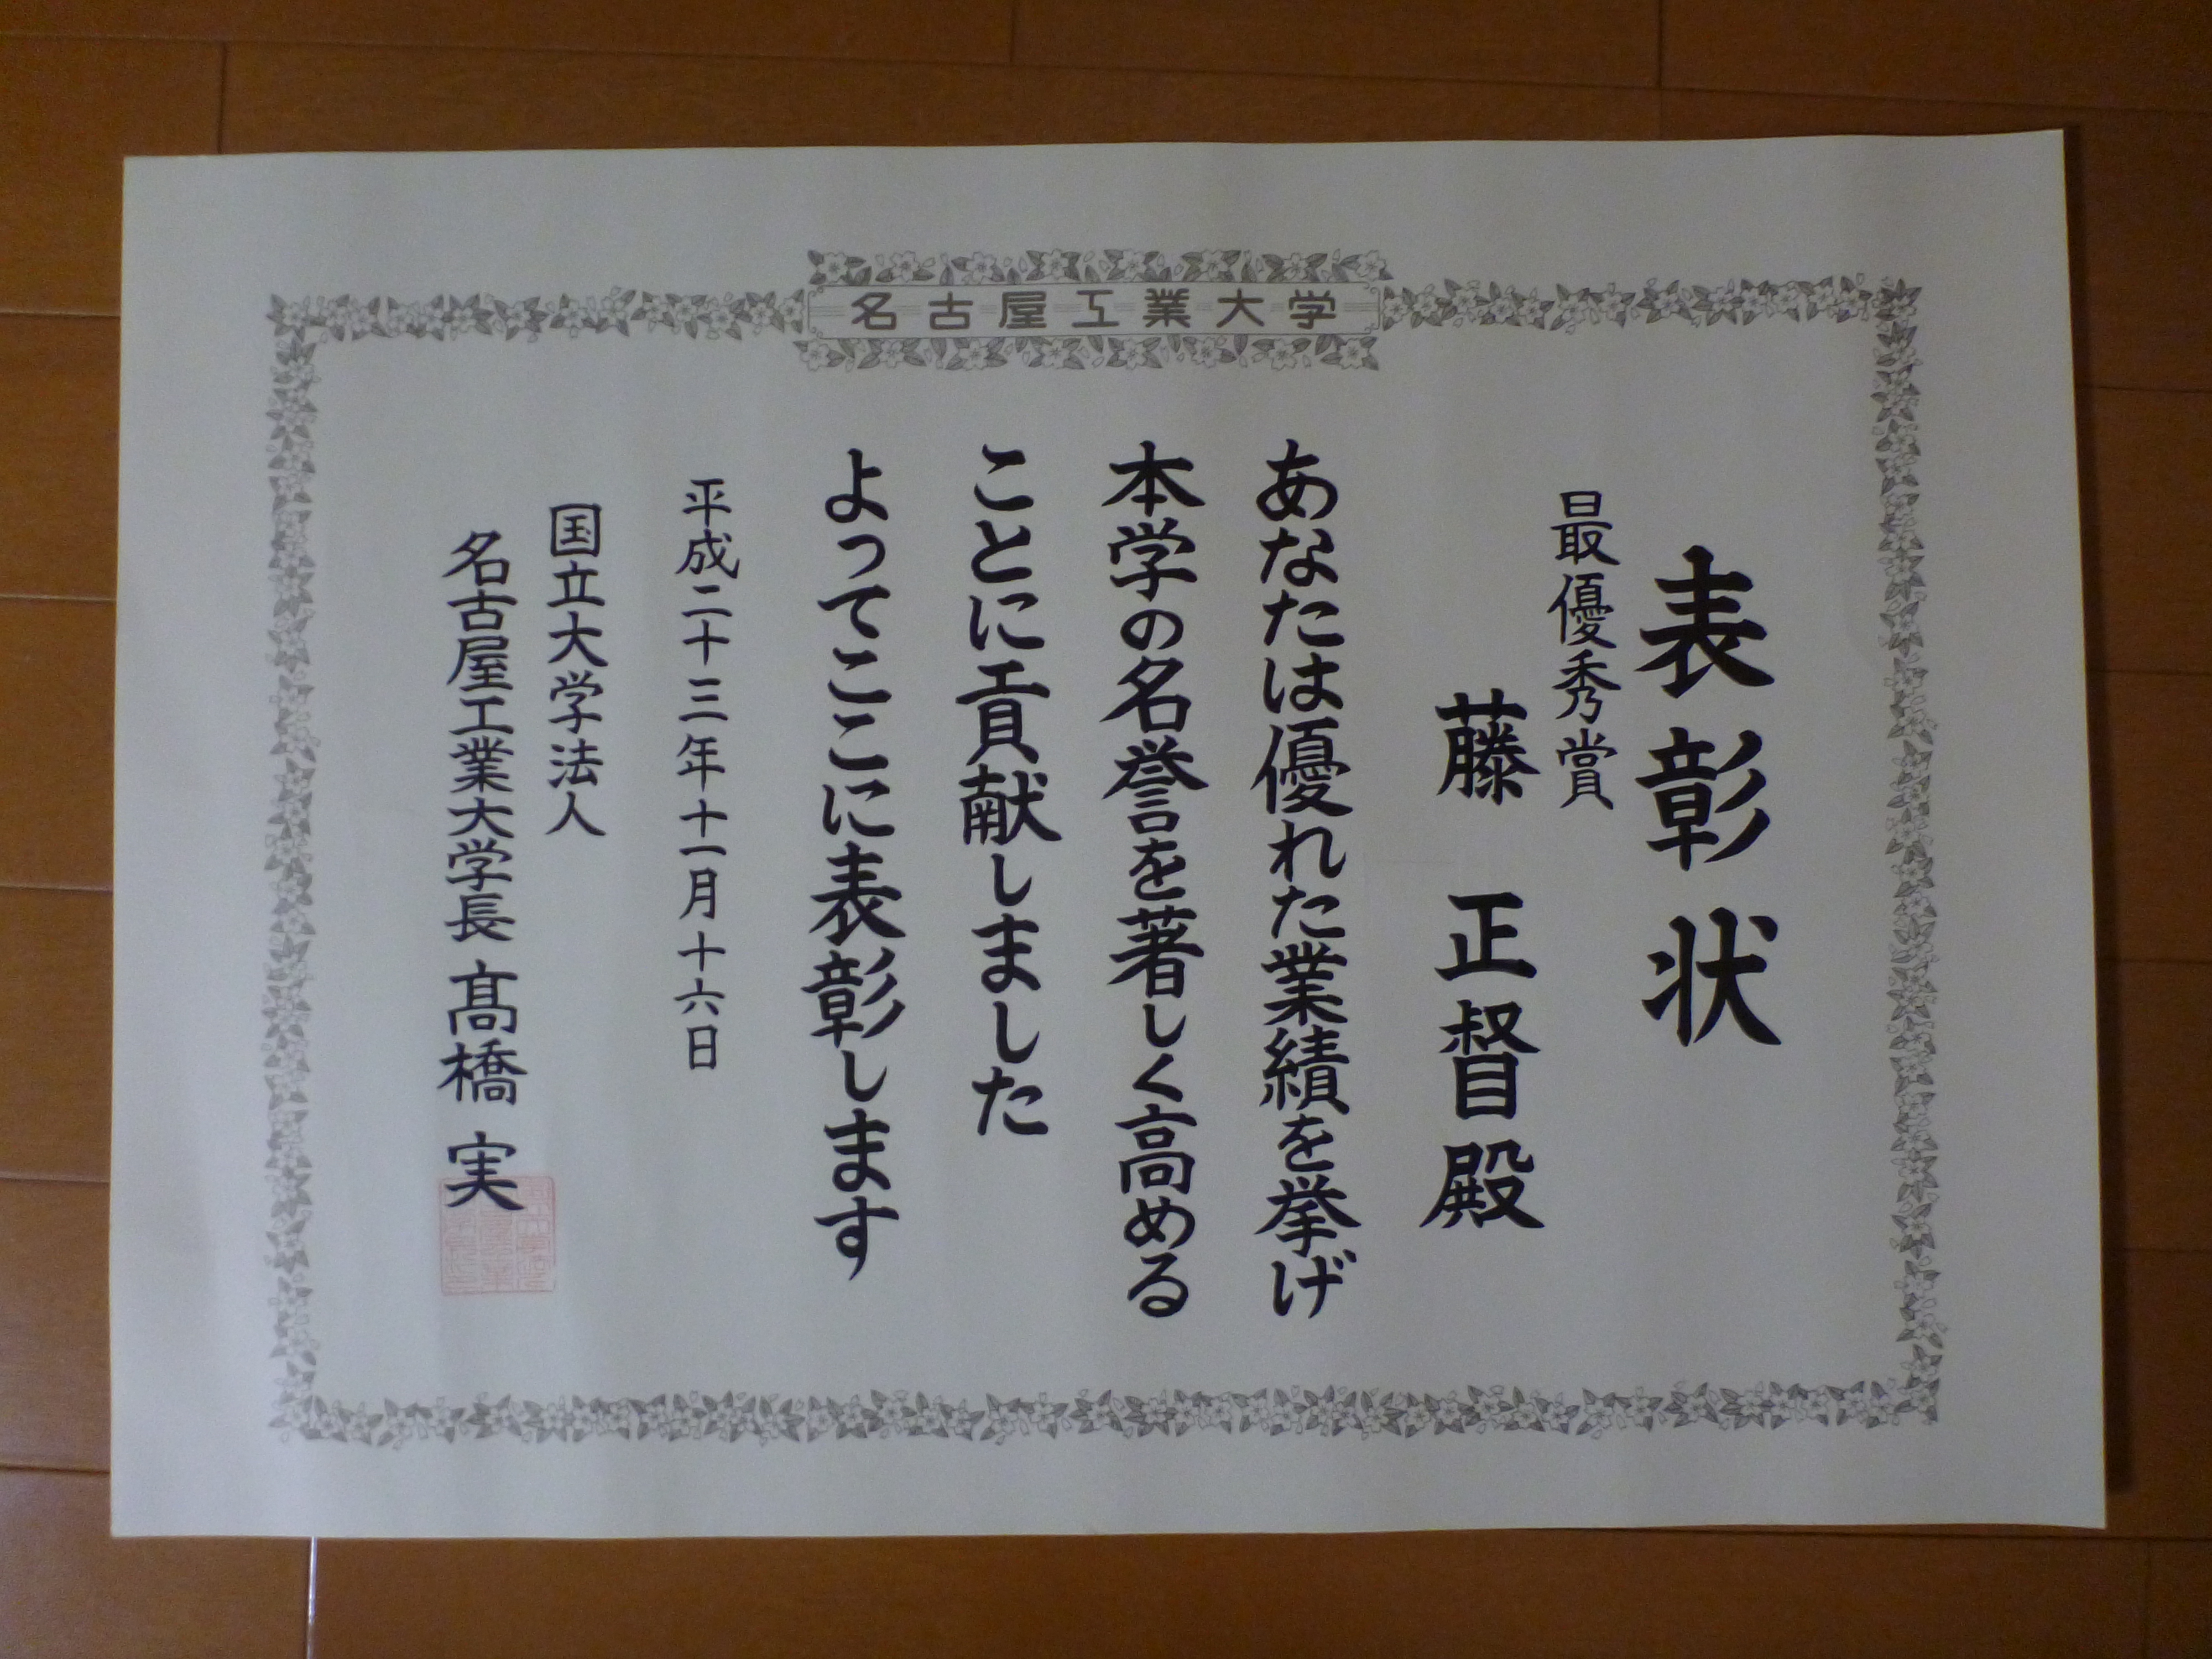 名古屋工業大学
表彰状
最優秀賞
藤 正督殿
あなたは優れた業績を挙げ
本学の名誉を著しく高める
ことに貢献しました
よってここに表彰します
平成二十三年十一月十六日
国立大学法人
名古屋工業大学長 髙橋 実